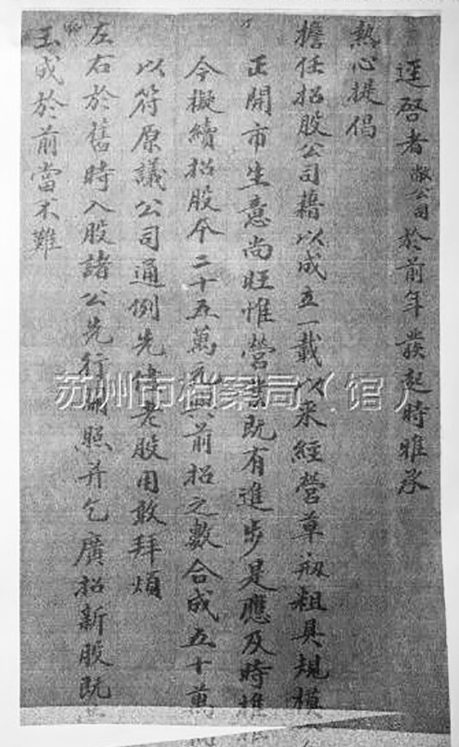 逕啓者敝公司於前年發起時雅承
熱心提倡
擔任招股公司藉以成立一載以來經營草粗具規模
正開市生意尚旺惟營業既有進步是應及時推
今擬續招股二十五萬元與前招之數合成五十萬
以符原議公司通例先儘老股用敢拜煩
左右於舊時入股諸公先行照并乞廣招新股既
玉成於前當不難
苏州市档案局（馆）